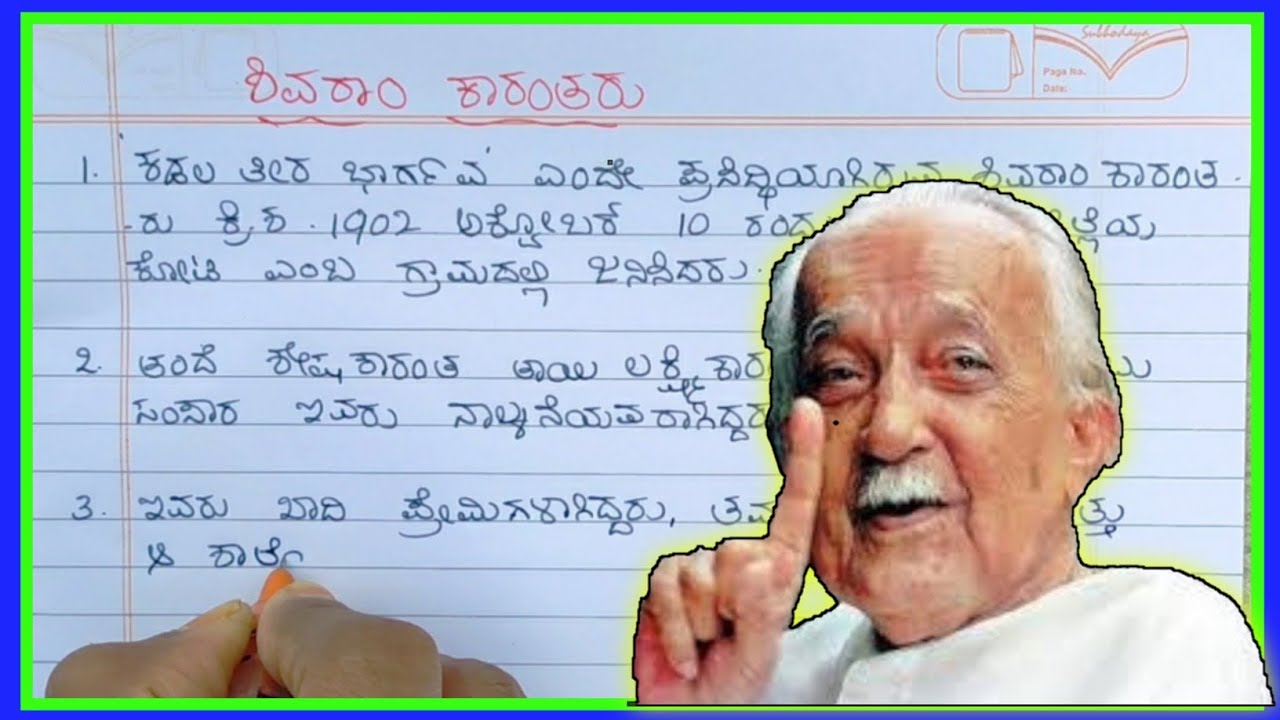 Subhodaya
Page No.
Date:
ಶಿವರಾಂ ಕಾರಂತರು
1. ಕಡಲ ತೀರ ಭಾರ್ಗವ ಎಂದೇ ಪ್ರಸಿದ್ಧಿಯಾಗಿರುವ ಶಿವರಾಂ ಕಾರಂತ-
-ರು ಕ್ರಿ.ಶ. 1902 ಅಕ್ಟೋಬರ್ 10 ರಂದು
ಕೋಟ ಎಂಬ ಗ್ರಾಮದಲ್ಲಿ ಜನಿಸಿದರು.
2. ತಂದೆ ಶೇಷ ಕಾರಂತ ತಾಯಿ ಲಕ್ಷ್ಮೀ
ಸಂಸಾರ ಇವರು ನಾಲ್ಕನೆಯವರಾಗಿದ್ದರು
3. ಇವರು ಖಾದಿ ಪ್ರೇಮಿಗಳಾಗಿದ್ದರು,